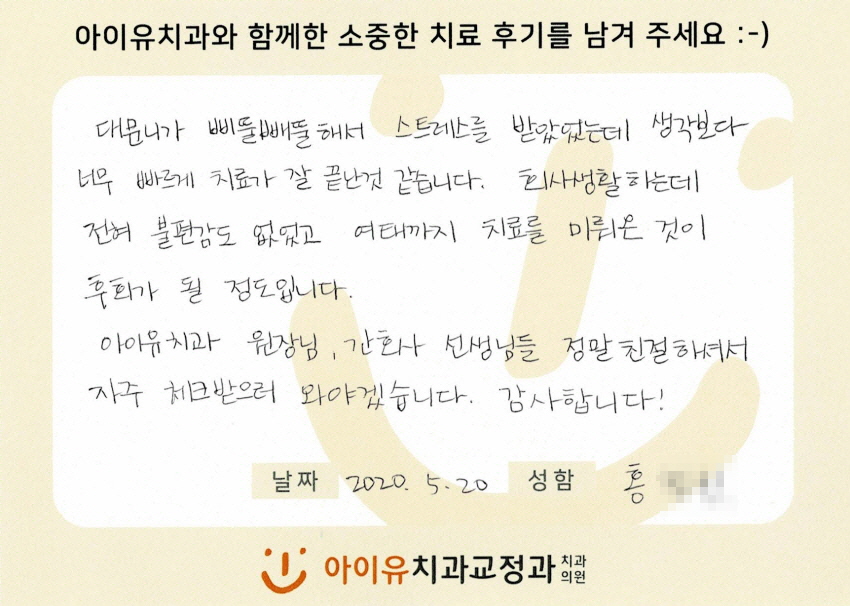 아이유치과와 함께한 소중한 치료 후기를 남겨 주세요 :-)
대문니가 삐뚤빼뚤해서 스트레스를 받았었는데 생각보다
너무 빠르게 치료가 잘 끝난것 같습니다. 회사생활하는데
전혀 불편감도 없었고 여태까지 치료를 미뤄온 것이
후회가 될 정도입니다.
아아유치과 원장님, 간호사 선생님들 정말 친절하셔서
자주 체크받으러 와야겠습니다. 감사합니다!
날짜 2020. 5. 20 성함 홍
아이유치과교정과 치과의원